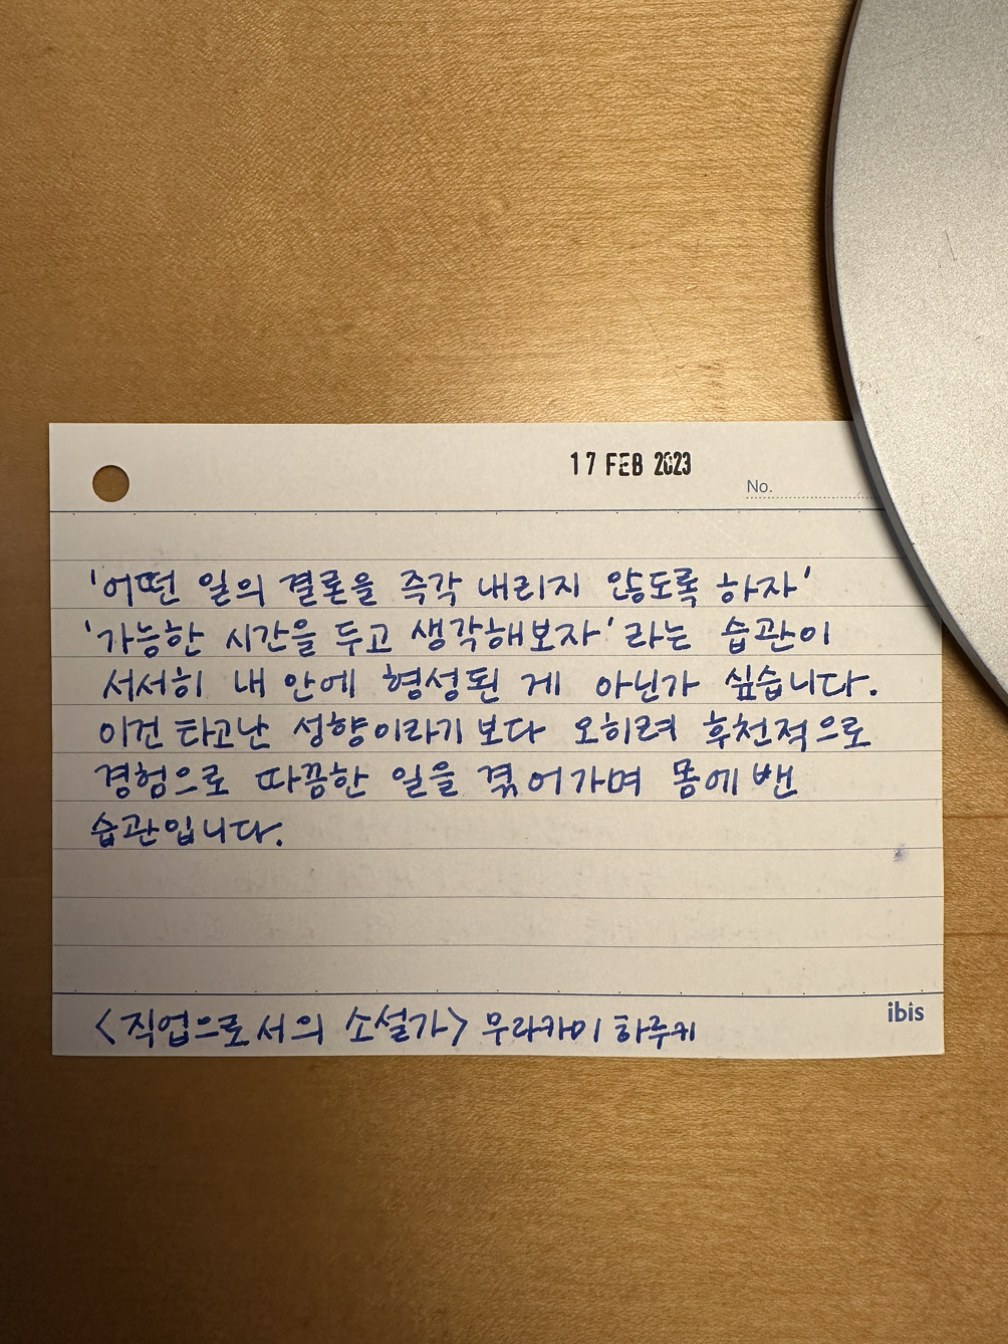 17 FEB 2023
No.
'어떤 일의 결론을 즉각 내리지 않도록 하자'
'가능한 시간을 두고 생각해보자'라는 습관이
서서히 내 안에 형성된 게 아닌가 싶습니다.
이건 타고난 성향이라기 보다 오히려 후천적으로
경험으로 따끔한 일을 겪어가며 몸에 밴
습관입니다.
<직업으로서의 소설가> 무라카미 하루키
ibis